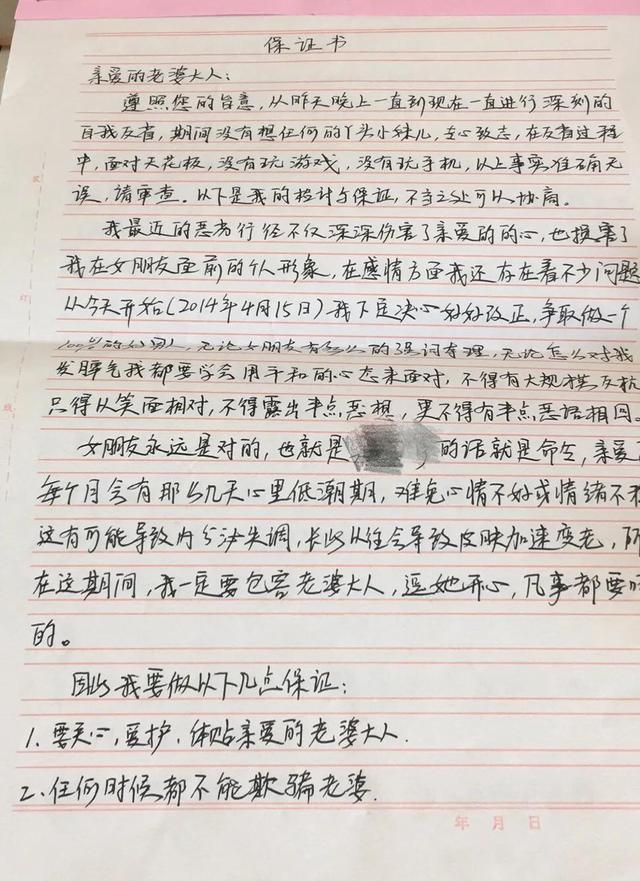 保证书
亲爱的老婆大人：
遵照您的旨意，从昨天晚上一直到现在一直进行深刻的
自我反省，期间没有想任何的丫头小妹儿，专心致志，在反省过程
中，面对天花板，没有玩游戏，没有玩手机，以上事实准确无
误，请审查。以下是我的检讨与保证，不当之处可以协商。
我最近的恶劣行径不仅深深伤害了亲爱的的心，也损害了
我在女朋友面前的个人形象，在感情方面我还存在着不少问题
从今天开始(2014年4月15日)我下定决心好好改正，争取做一个
的，无论女朋友有什么的强词夺理，无论怎么对我
发脾气我都要学会用平和的心态来面对，不得有大规模反抗
只得以笑面相对，不得露出半点恶想，更不得有半点恶语相向。
女朋友永远是对的，也就是 的话就是命令，亲爱
每个月会有那么几天心里低潮期，难免心情不好或情绪不
这有可能导致内分泌失调，长此以往会导致皮肤加速变老，所
在这期间，我一定要包容老婆大人，逗她开心，凡事都要
的。
因此我要做以下几点保证：
1.要关心，爱护，体贴亲爱的老婆大人.
2.任何时候都不能欺骗老婆.
年 月 日
装
订
线